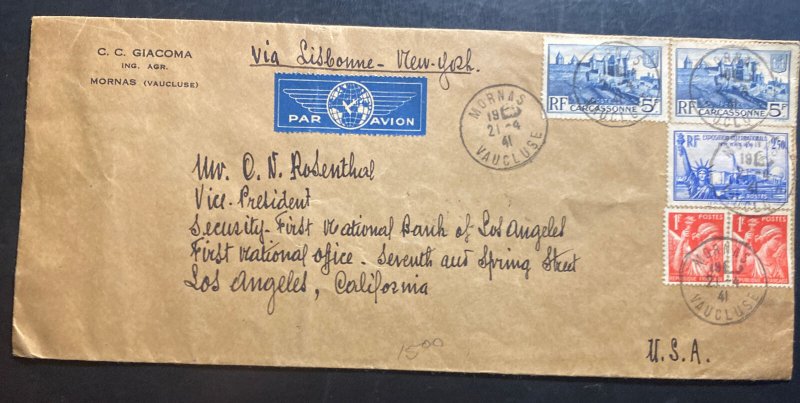 C. C. GIACOMA
ING. AGR.
MORNAS (VAUCLUSE)
Via Lisbonne - New-York.
PAR AVION
MORNAS
21 -4
41
VAUCLUSE
RF CARCASSONNE 5F
RF CARCASSONNE 5F
EXPOSITION INTERNATIONALE
RF 2F50
POSTES
1F POSTES
1F POSTES
REPUBLIQUE FRANÇAISE
MORNAS
41
VAUCLUSE
Mr. O. N. Rosenthal
Vice-President
Security-First National Bank of Los Angeles
First National Office - Seventh and Spring Street
Los Angeles, California
U.S.A.
1500